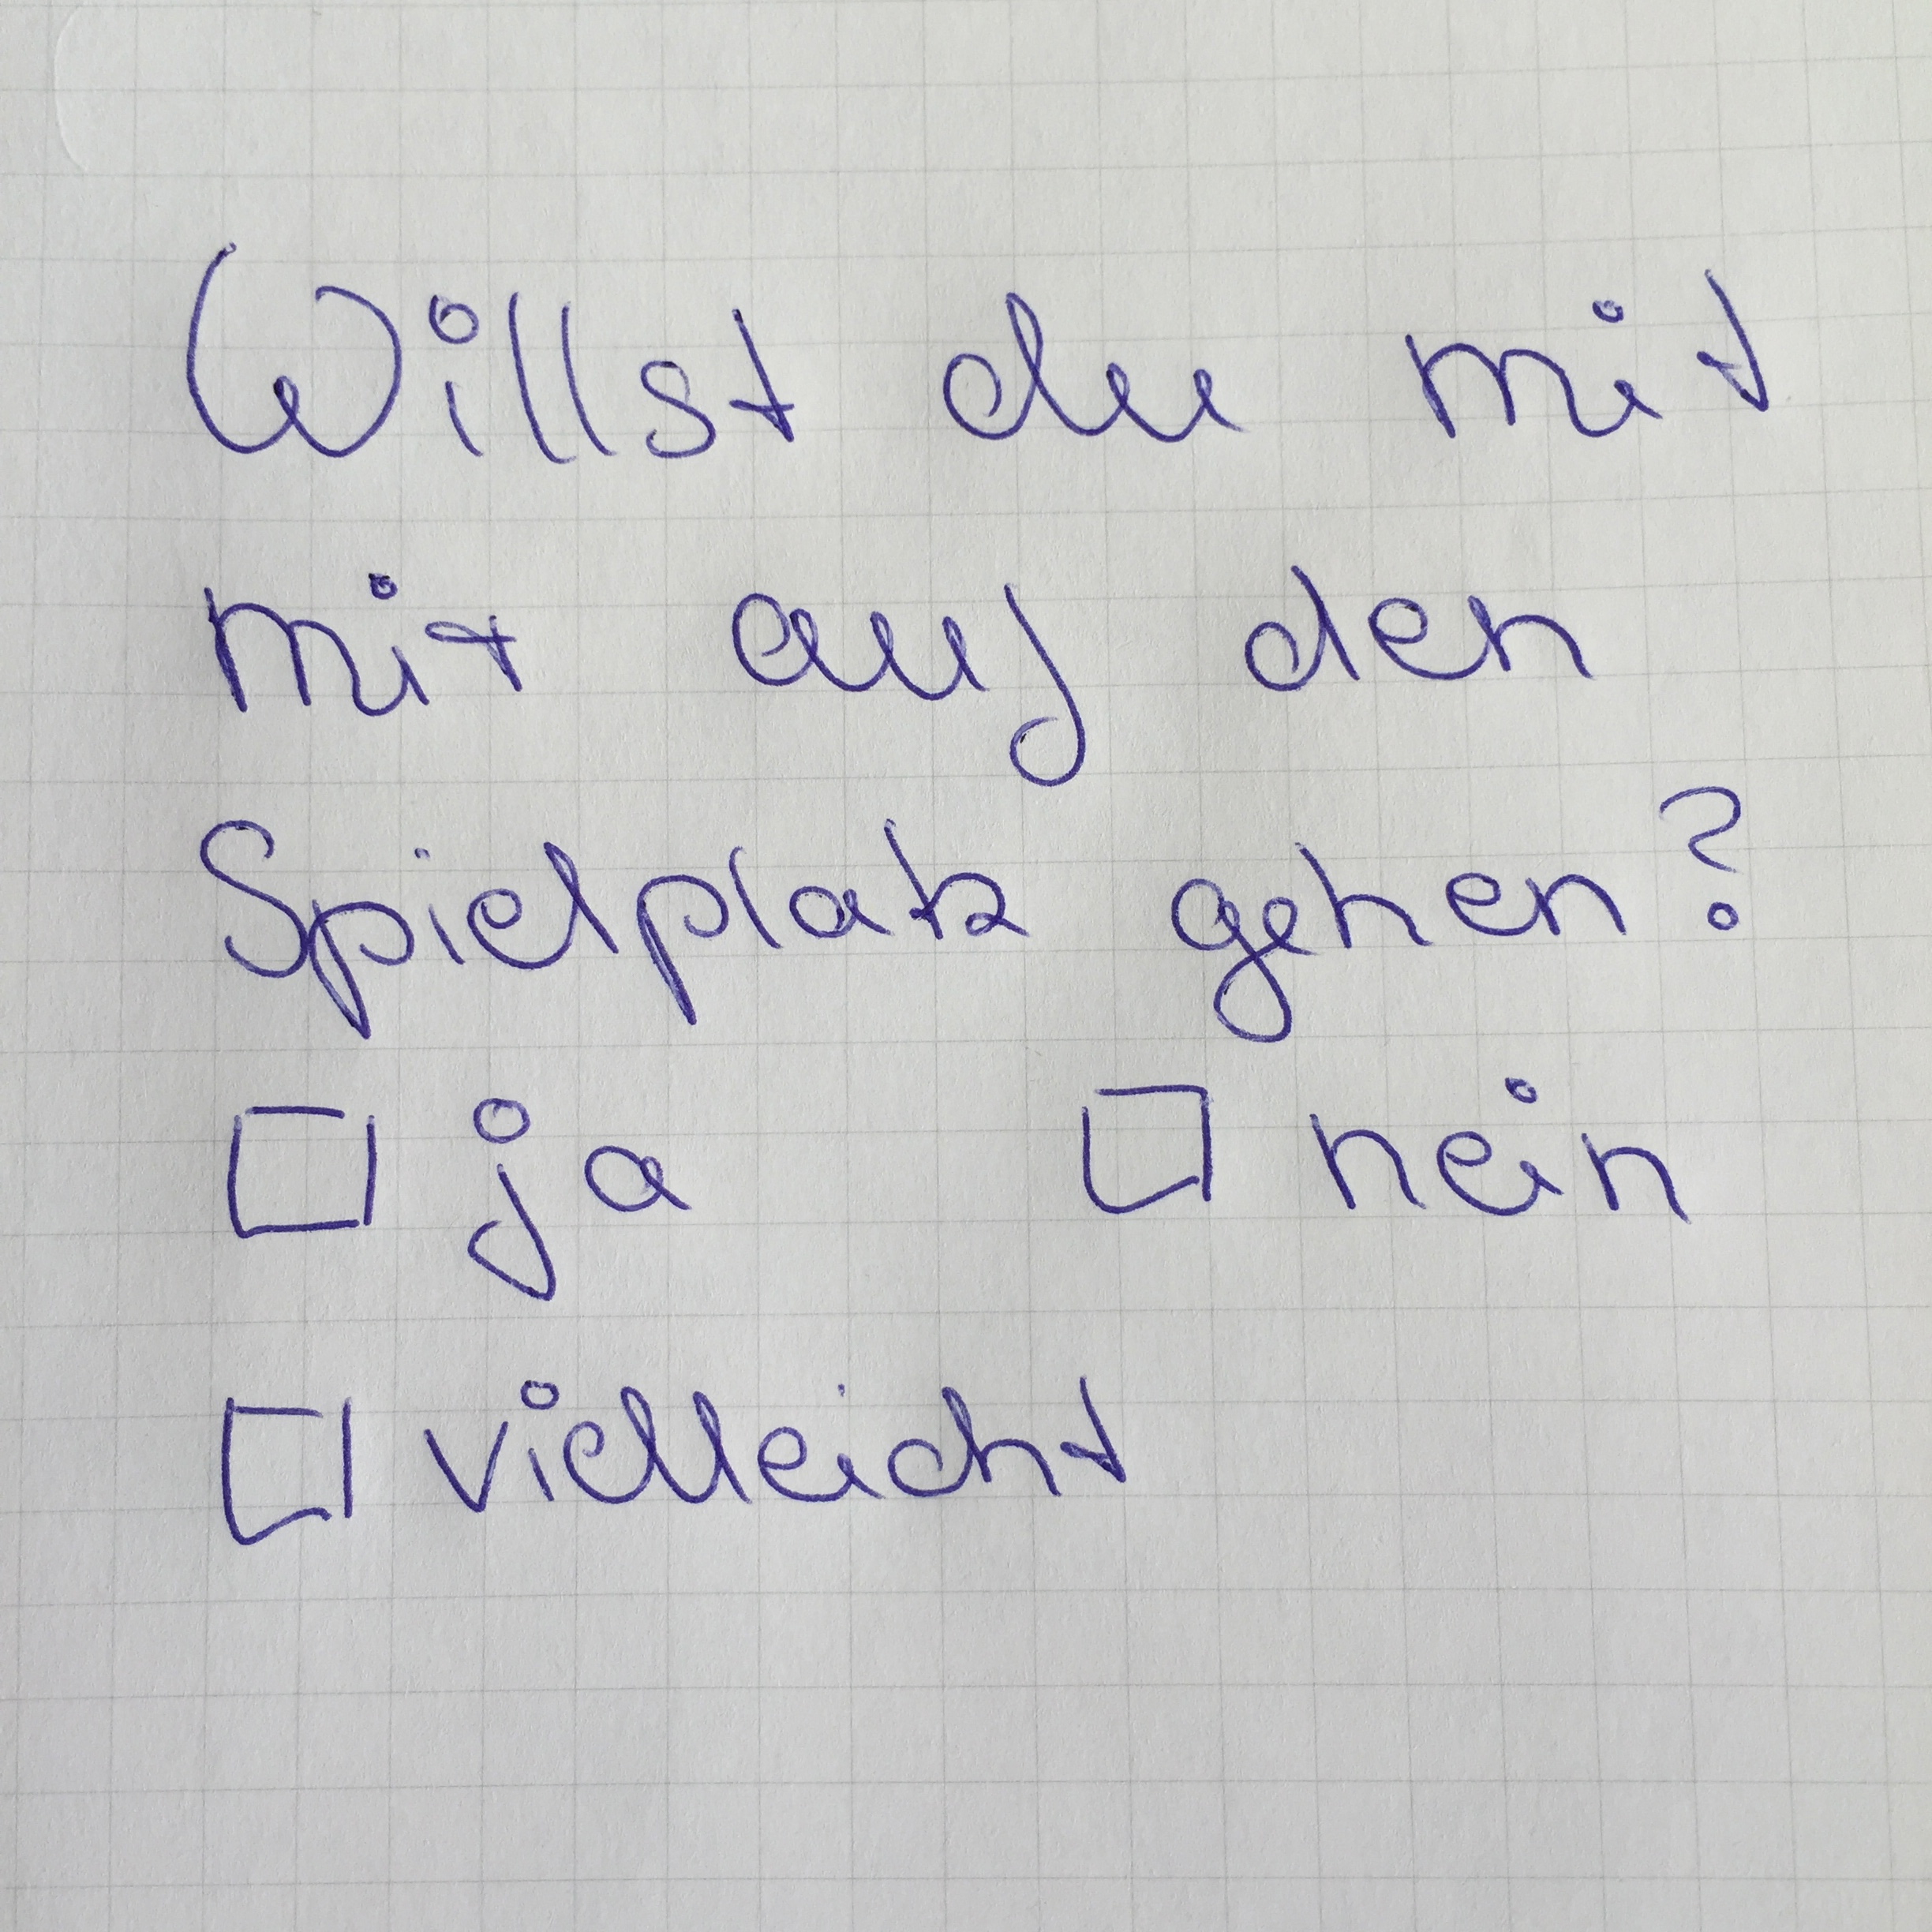 Willst du mit
mir auf den
Spielplatz gehen?
☐ ja ☐ nein
☐ vielleicht